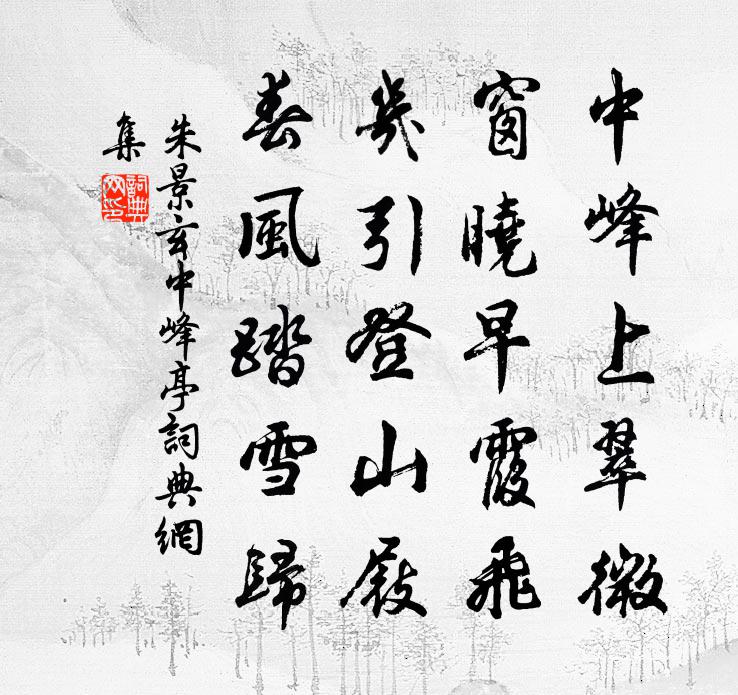 中峰上翠微
窗曉早霞飛
幾引登山屐
春風踏雪歸
朱景玄中峰亭詞典網
集
詞典網印